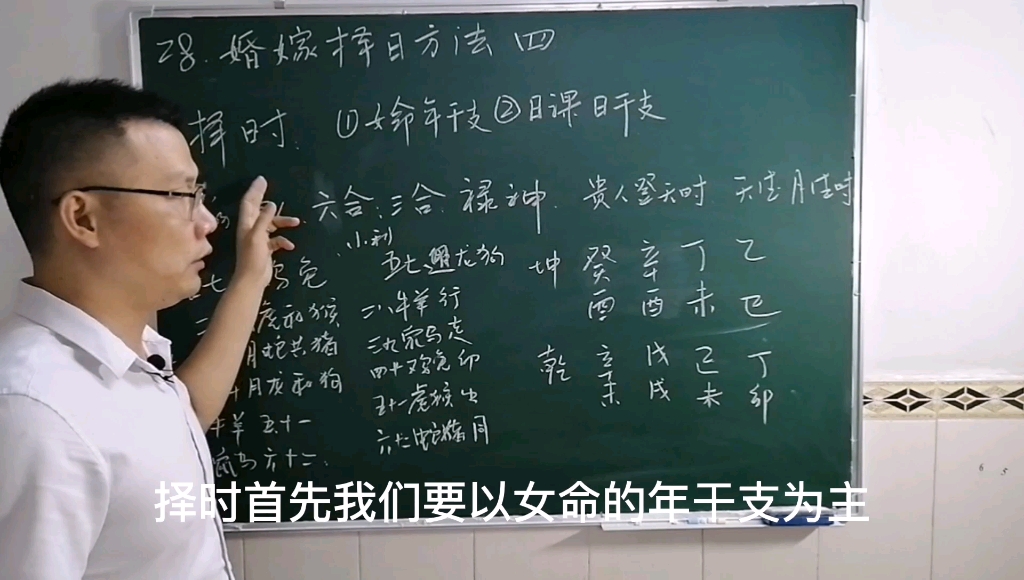 28. 婚嫁择日方法 四
择时. ①女命年干支 ②日课日干支
六合; 三合. 禄神. 贵人登天时
小利
龙狗
坤 癸 辛 丁 乙
酉 酉 未 巳
鸡兔
虎和猴
二八牛羊行
月蛇共猪
三九鼠马走
乾 辛 戊 己 丁
未 戌 未 卯
月龙和狗
四十鸡兔
羊 五十一
五十一虎猴
马六十二
择时首先我们要以女命的年干支为主